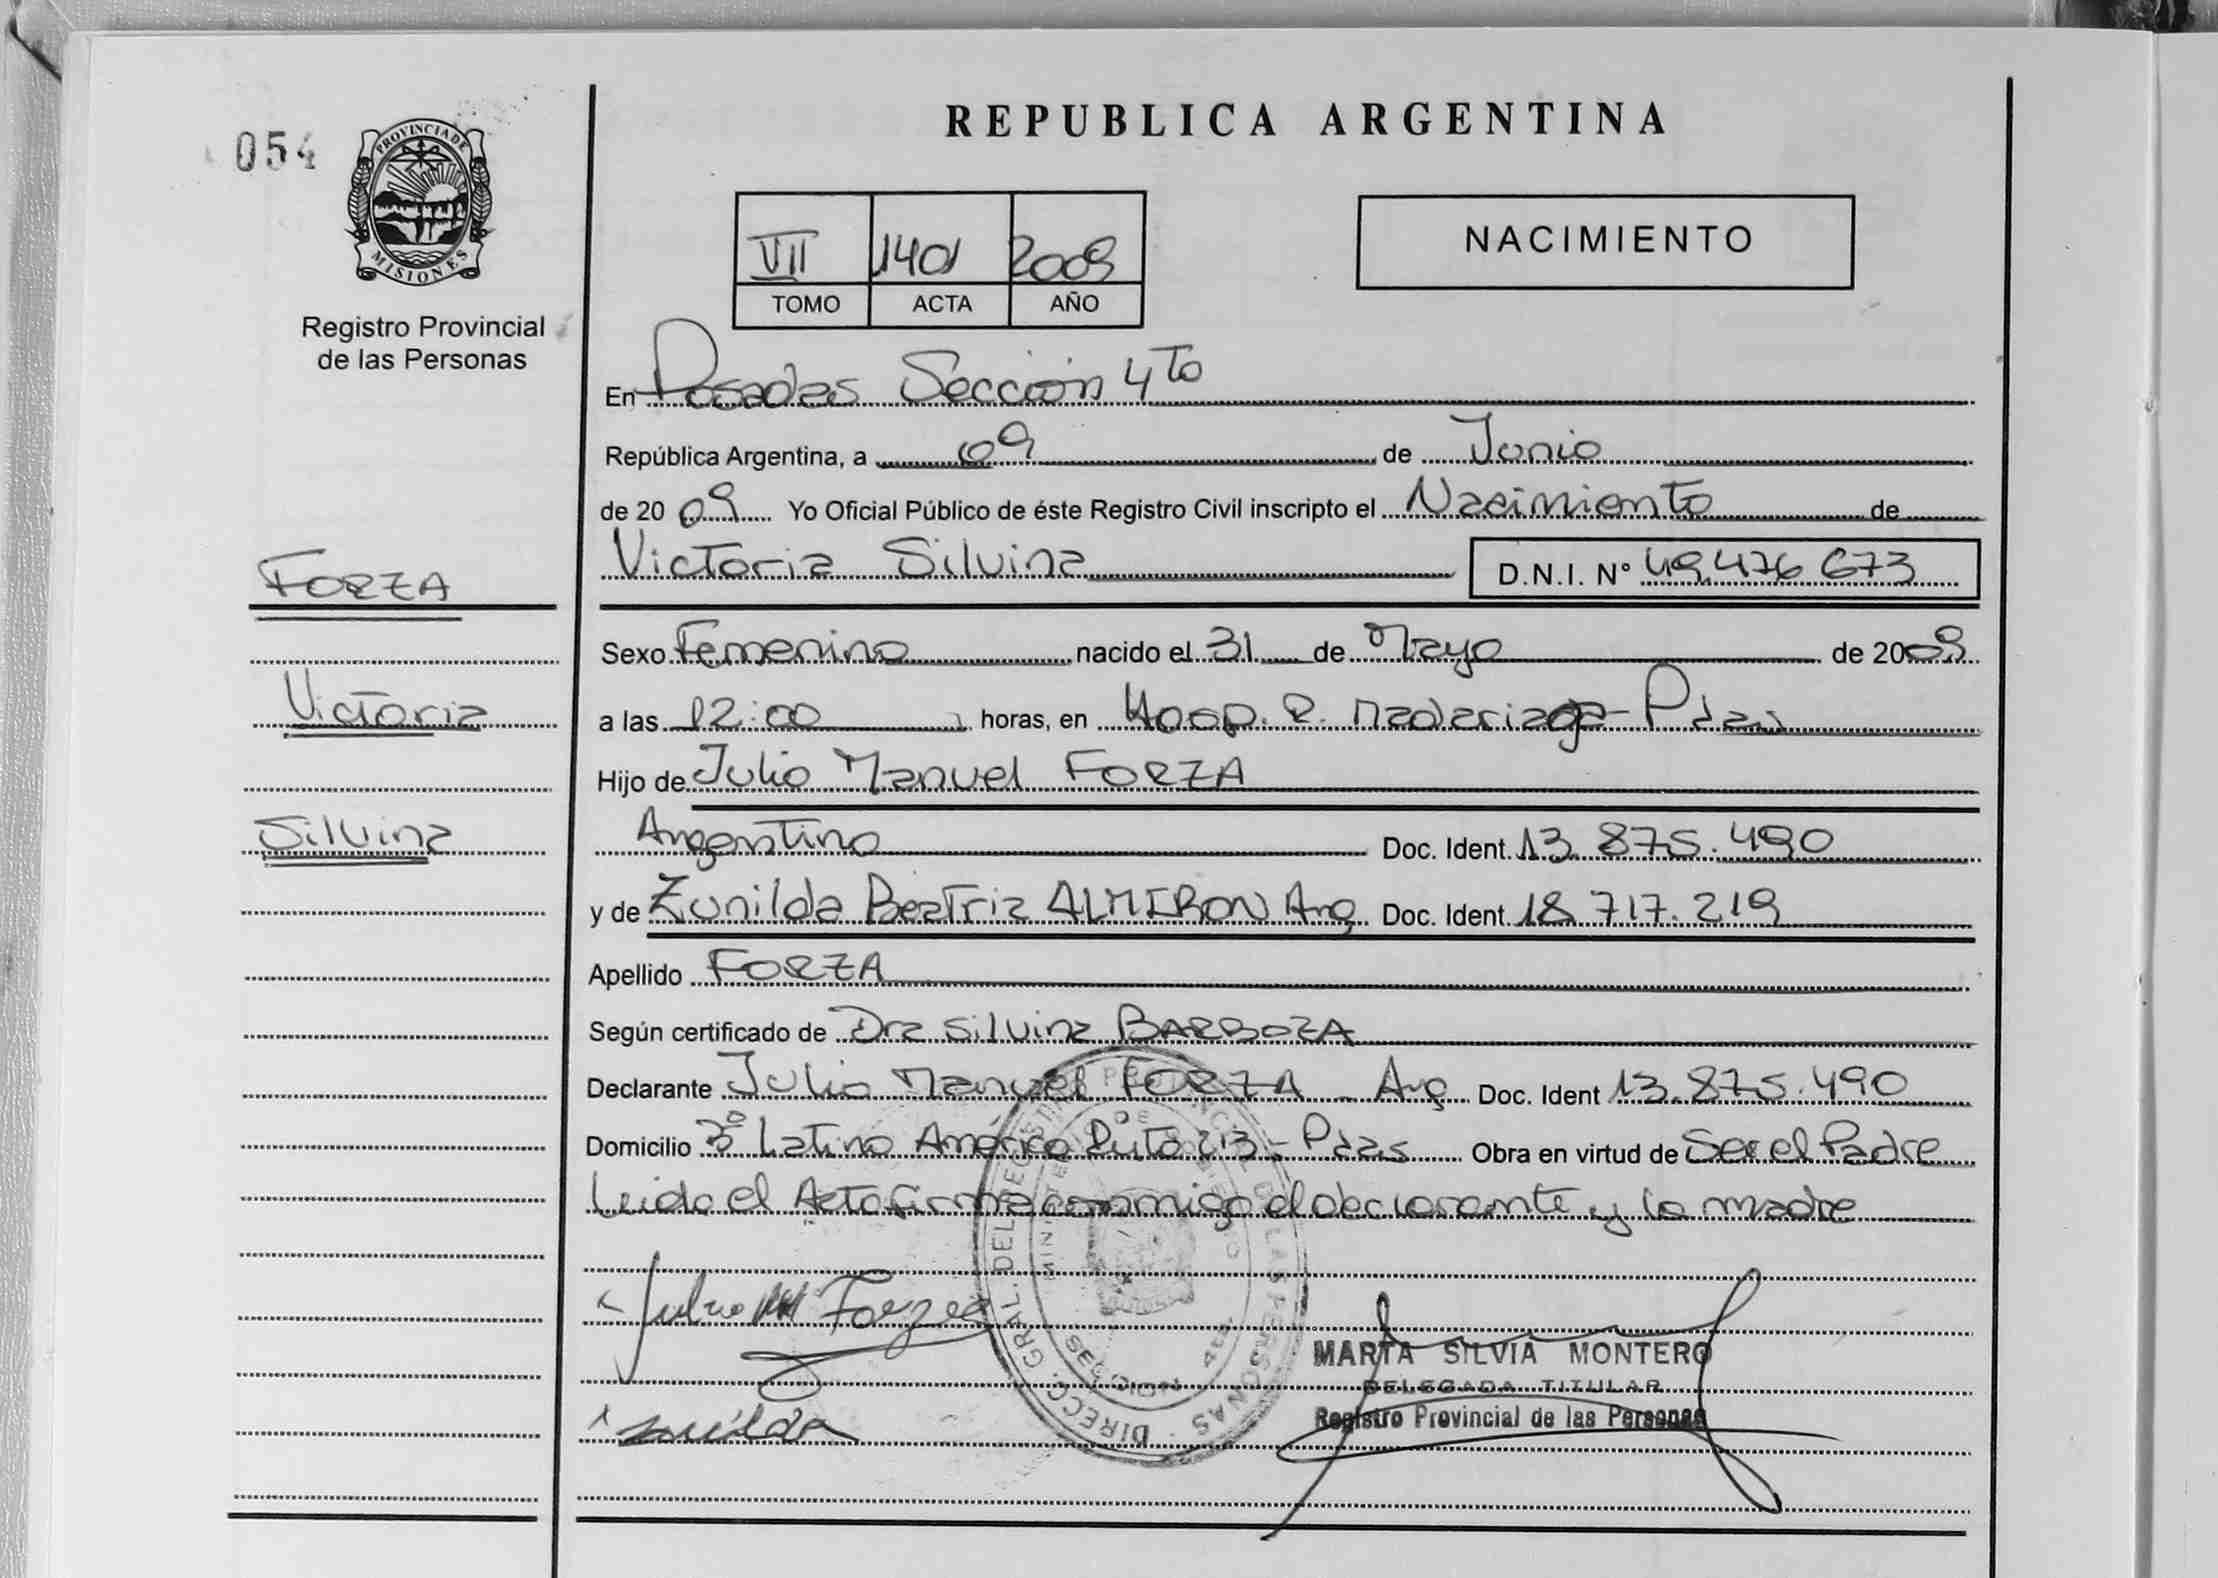 REPUBLICA ARGENTINA
054
PROVINCIA DE
MISIONES
Registro Provincial
de las Personas
NACIMIENTO
VII 1401 2009
TOMO ACTA AÑO
En Posadas Sección 4to
República Argentina, a 09 de Junio
de 2009 Yo Oficial Público de éste Registro Civil inscripto el Nacimiento de
Victoria Silvina D.N.I. Nº 49.476 673
FORZA
Sexo Femenino nacido el 31 de Mayo de 2009
Victoria
a las 12:00 horas, en Hosp. R. Madariaga - Pdas
Hijo de Julio Manuel FORZA
Silvina
Argentino Doc. Ident. 13.875.490
y de Zunilda Beatriz ALMIRON Arg Doc. Ident. 18.717.219
Apellido FORZA
Según certificado de Dra Silvina BARBOZA
Declarante Julio Manuel FORZA - Arg Doc. Ident 13.875.490
Domicilio Bº Latino América Ruta 213 - Pdas Obra en virtud de Ser el Padre
Leido el Acta firma conmigo el declarante y la madre
Julio M Forza
MARTA SILVIA MONTERO
DELEGADA TITULAR
Registro Provincial de las Personas
DIRECC. GRAL. DEL REGISTRO PROVINCIAL DE LAS PERSONAS
MINISTERIO DE GOBIERNO
MISIONES